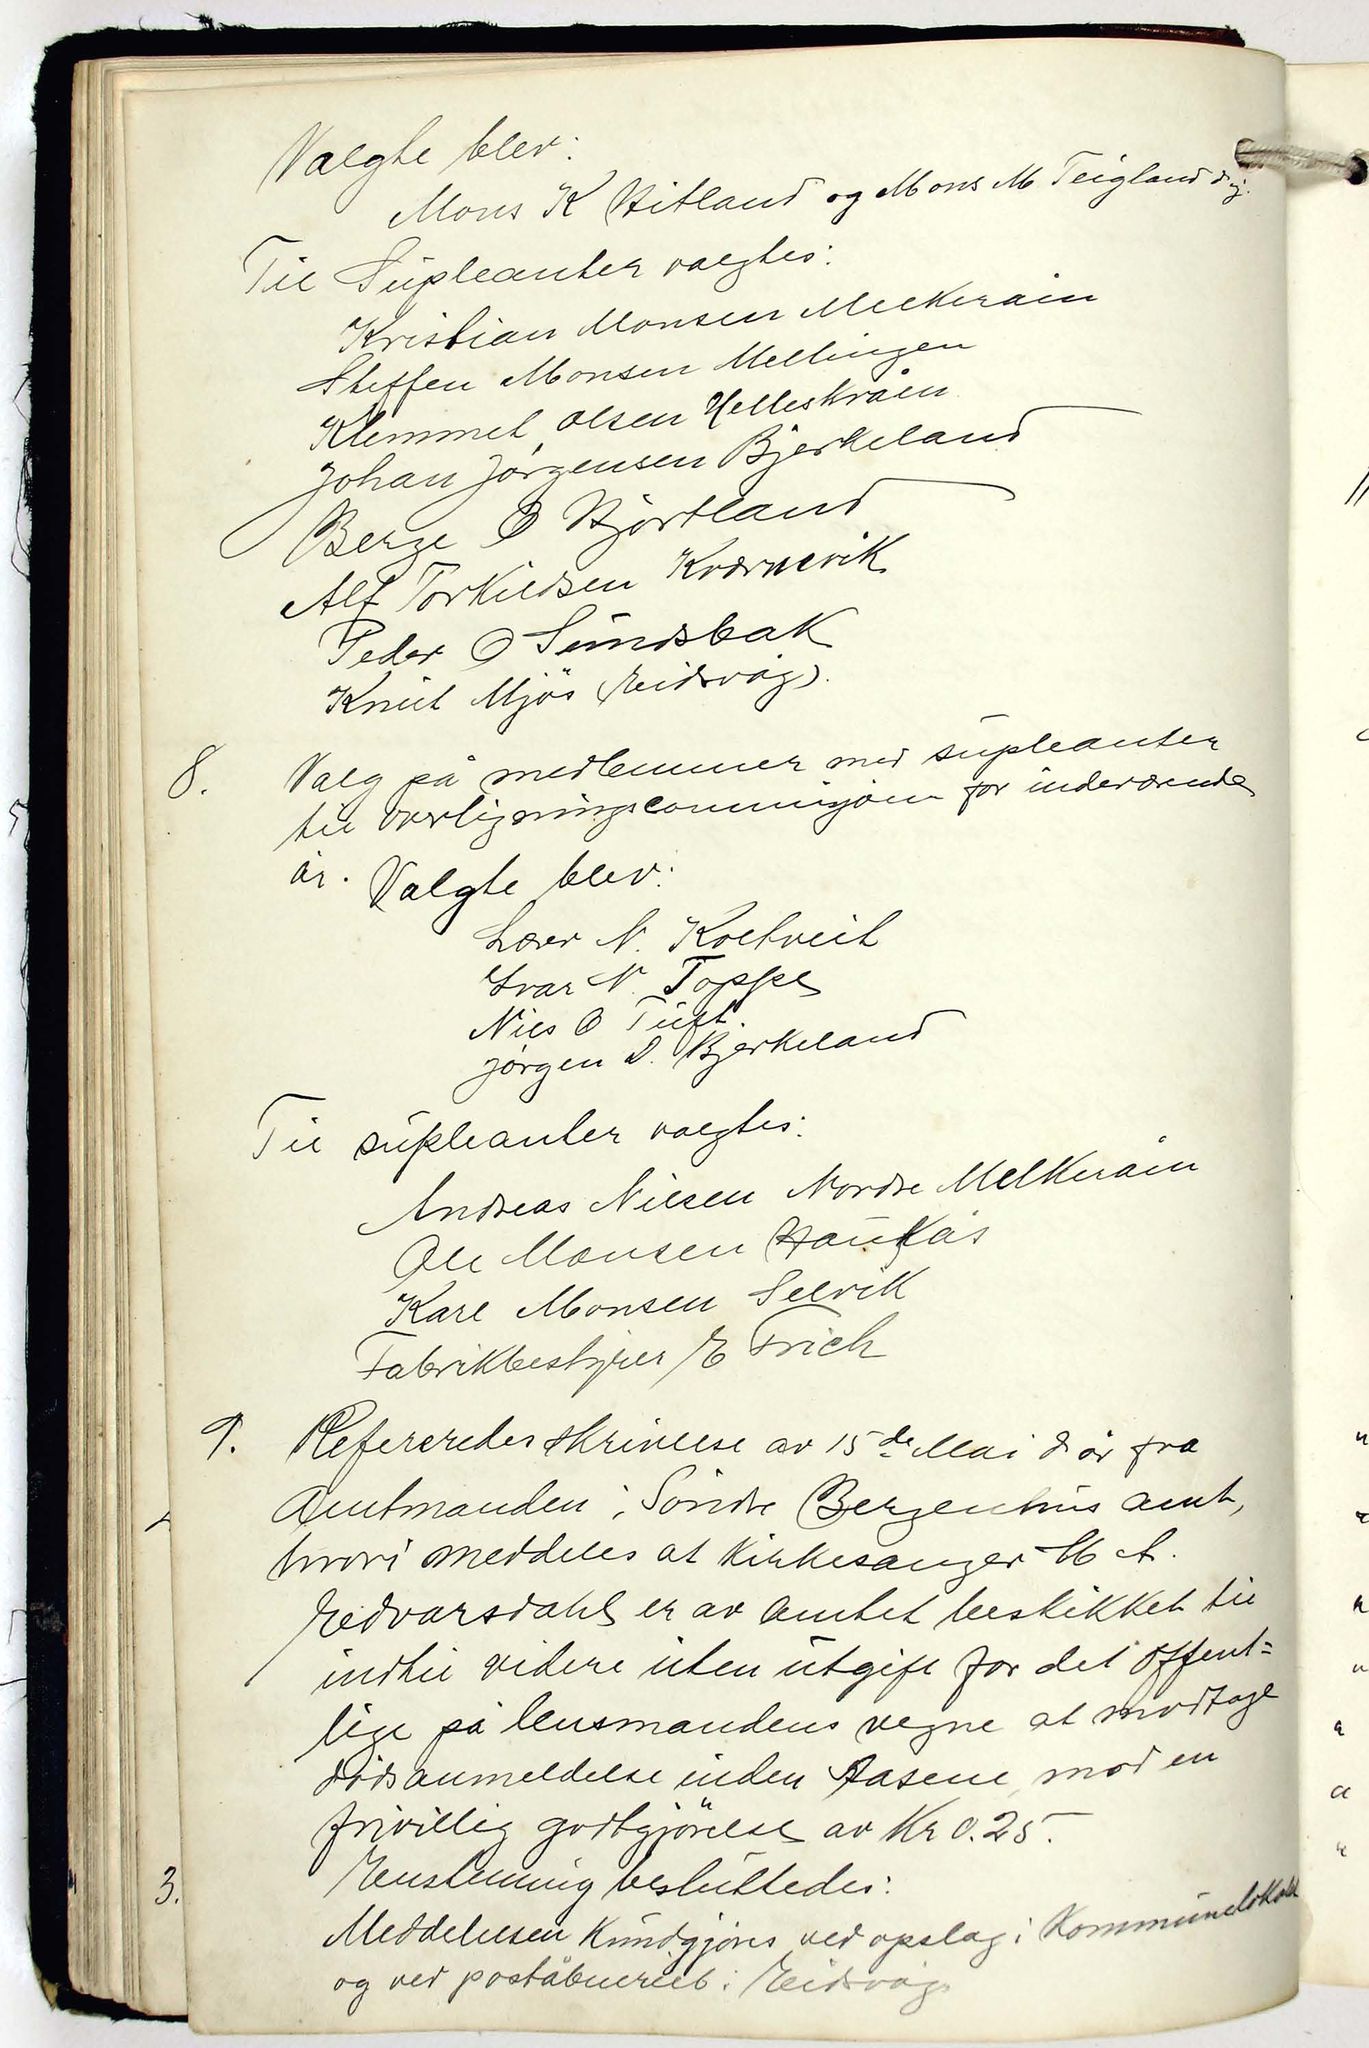 Valgte blev:
Mons K Hitland og Mons M Teigland d.y.
Til Supleanter valgtes:
Kristian Monsen Melkeråen
Steffen Monsen Mellingen
Klemmet Olsen Helleskråen
Johan Jörgensen Bjerkeland
Berge O Hjortland
Alf Torkildsen Kværnevik
Peder O Sundsbak
Knut Mjös (Eidsvåg).
8. Valg på medlemmer med supleanter
til overligningscommisjonen for indeværende
år. Valgte blev:
Lærer N. Koltveit
Ivar N. Toppe
Nils O Tuft.
Jörgen D. Bjerkeland
Til supleanter valgtes:
Andreas Nilsen Nordre Melkeråen
Ole Monsen Haukås
Karl Monsen Selvik
Fabrikbestyrer E Frich
9. Refereredes skrivelse av 15de Mai d år fra
Amtmanden i Söndre Bergenhus amt,
hvori meddeles at kirkesanger M A.
Edvarsdahl er av Amtet beskikket til
indtil videre uten utgift for det offent=
lige på lensmandens vegne at modtage
dödsanmeldelse inden Aasene, mod en
frivillig godtgjörelse av Kr 0.25.
Enstemmig besluttedes:
Meddelelsen kundgjöres ved opslag i Kommunelokalet
og ved poståbneriet i Eidsvåg.
3.